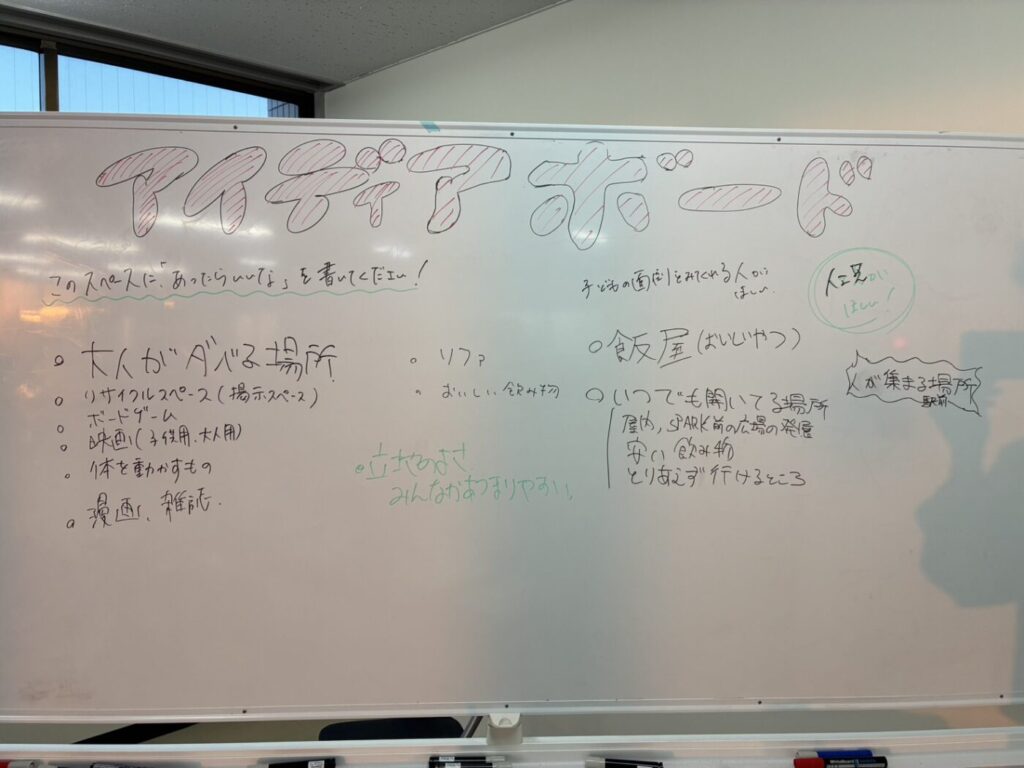 アイディアボード
このスペースに「あったらいいな」を書いてください!
大人がダベる場所
リサイクルスペース(掲示スペース)
ボードゲーム
映画(子供用、大人用)
体を動かすもの
漫画、雑誌
ソファ
おいしい飲み物
立地のよさ
みんながあつまりやすい。
子どもの面倒をみてくれる人が
ほしい
飯屋(おいしいやつ)
いつでも開いてる場所
屋内, SPARK前の広場の発展
安い飲み物
とりあえず行けるところ
がほしい!
人が集まる場所
駅前